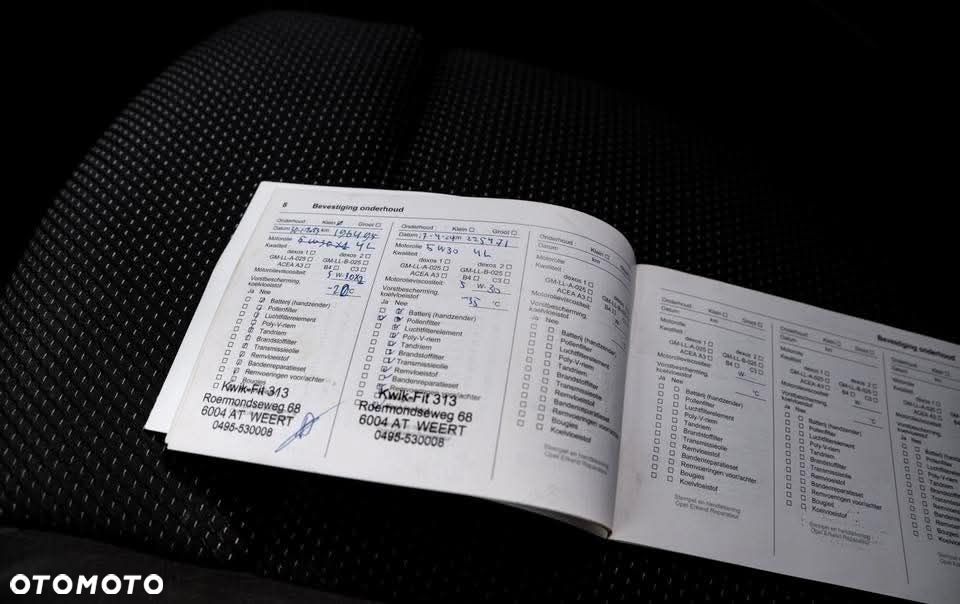 8 Bevestiging onderhoud
Onderhoud Klein Groot
Datum km 196494
Motorolie 5 W30 4L
Kwaliteit dexos 1 dexos 2
GM-LL-A-025 GM-LL-B-025
ACEA A3 B4 C3
Motorolieviscositeit: 5 W-30
Vorstbescherming,
koelvloeistof -20 °C
Ja Nee
Batterij (handzender)
Pollenfilter
Luchtfilterelement
Poly-V-riem
Tandriem
Brandstoffilter
Transmissieolie
Remvloeistof
Bandenreparatieset
Remvoeringen voor/achter
Bougies
Kwik-Fit 313
Roermondseweg 68
6004 AT WEERT
0495-530008
Onderhoud Klein Groot
Datum 17-4-24 km 225471
Motorolie 5W30 4L
Kwaliteit dexos 1 dexos 2
GM-LL-A-025 GM-LL-B-025
ACEA A3 B4 C3
Motorolieviscositeit: 5 W-30
Vorstbescherming,
koelvloeistof -35 °C
Ja Nee
Batterij (handzender)
Pollenfilter
Luchtfilterelement
Poly-V-riem
Tandriem
Brandstoffilter
Transmissieolie
Remvloeistof
Bandenreparatieset
Kwik-Fit 313
Roermondseweg 68
6004 AT WEERT
0495-530008
Onderhoud Klein
Datum km
Motorolie
Kwaliteit
dexos 1
GM-LL-A-025
ACEA A3
Motorolieviscositeit:
Vorstbescherming,
koelvloeistof
Ja Nee
Batterij (handzender)
Pollenfilter
Luchtfilterelement
Poly-V-riem
Tandriem
Brandstoffilter
Transmissieolie
Remvloeistof
Bandenreparatieset
Remvoeringen
Bougies
Koelvloeistof
Stempel en handtekening
Opel Erkend Reparateur
Onderhoud Klein Groot
Datum km
Motorolie
Kwaliteit dexos 1 dexos 2
GM-LL-A-025 GM-LL-B-025
ACEA A3 B4 C3
Motorolieviscositeit: W-
Vorstbescherming,
koelvloeistof °C
Ja Nee
Batterij (handzender)
Pollenfilter
Luchtfilterelement
Poly-V-riem
Tandriem
Brandstoffilter
Transmissieolie
Remvloeistof
Bandenreparatieset
Remvoeringen voor/achter
Bougies
Koelvloeistof
Stempel en handtekening
Opel Erkend Reparateur
Bevestiging
Onderhoud Klein Groot
Datum km
Motorolie
Kwaliteit dexos 1 dexos 2
GM-LL-A-025 GM-LL-B-025
ACEA A3 B4 C3
Motorolieviscositeit: W-
Vorstbescherming,
koelvloeistof °C
Ja Nee
Batterij (handzender)
Pollenfilter
Luchtfilterelement
Poly-V-riem
Tandriem
Brandstoffilter
Transmissieolie
Remvloeistof
Bandenreparatieset
Remvoeringen voor/achter
Bougies
Koelvloeistof
Stempel en handtekening
Opel Erkend Reparateur
Onderhoud
Datum
Motorolie
Kwaliteit
dexos 1
GM-LL-A-025
ACEA A3
Motorolieviscositeit:
Vorstbescherming,
koelvloeistof
Ja Nee
Batterij
Pollenfilter
Poly-V-riem
Tandriem
Brandstoffilter
Transmissieolie
Remvloeistof
Remvoeringen
Bougies
Koelvloeistof
OTOMOTO